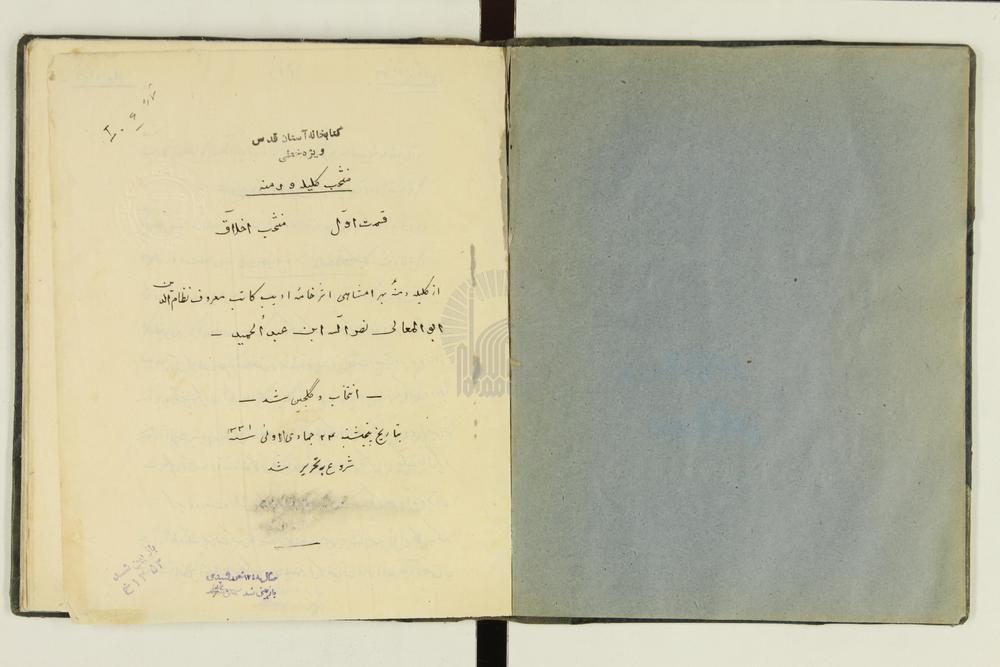 کتابخانه آستان قدس
ویژه خطی
منتخب کلیله و دمنه
قسمت اوّل منتخب اخلاق
از کلیله و دمنهٔ بهرامشاهی اثر خامهٔ ادیب کاتب معروف نظام الدین
ابو المعالی نصر الله ابن عبد الحمید –
– انتخاب و گلچین شد –
بتاریخ پنجشنبه ۲۳ جمادی الاولی سنه ۱۳۳۱
شروع به تحریر شد
سال ۱۳۴۸ خورشیدی
بازبینی شد
بازبینی شد
۱۳۵۳